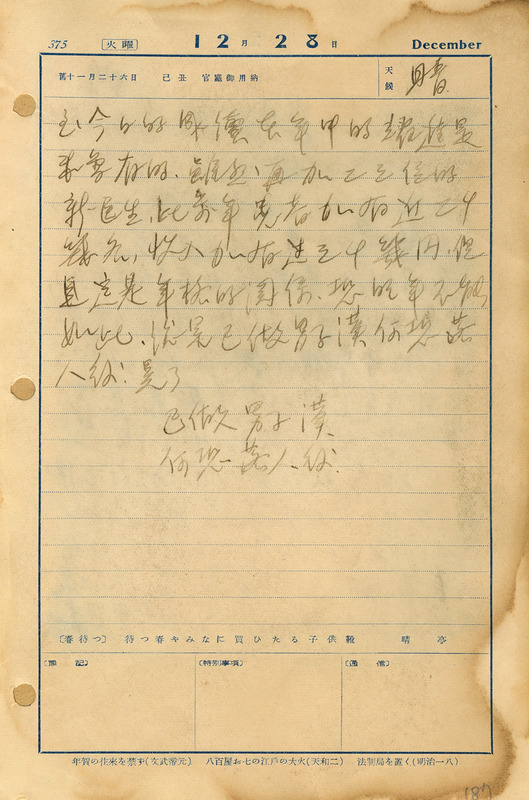 375 〔火曜〕 12月28日 December
舊十一月二十六日 己丑 官廳御用納 天候 晴
到今日的成價本年中的
未曾有的.雖然,再加上三位的
新医生,比前年患者加有近二十
幾名,收入加有達三十幾円,但
且這是年柩的関係、恐明年不能
如此,總是已做男子漢何恐落
人後!是了
已做男子漢
何恐落人後!
〔春待つ〕 待つ春やみなに買ひたる子供靴 晴亭
〔雜記〕 〔特別事項〕 〔通信〕
年賀の往來を禁ず(文武帝元) 八百屋お七の江戸の大火(天和二) 法制局を置く(明治一八)
187